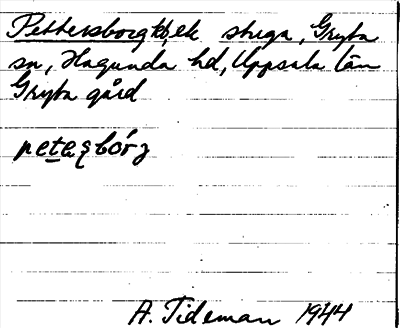 Pettersborg, ek stuga, Gryta
sn, Hagunda hd, Uppsala län
Gryta gård
peteʂbórj
A. Tideman 1944